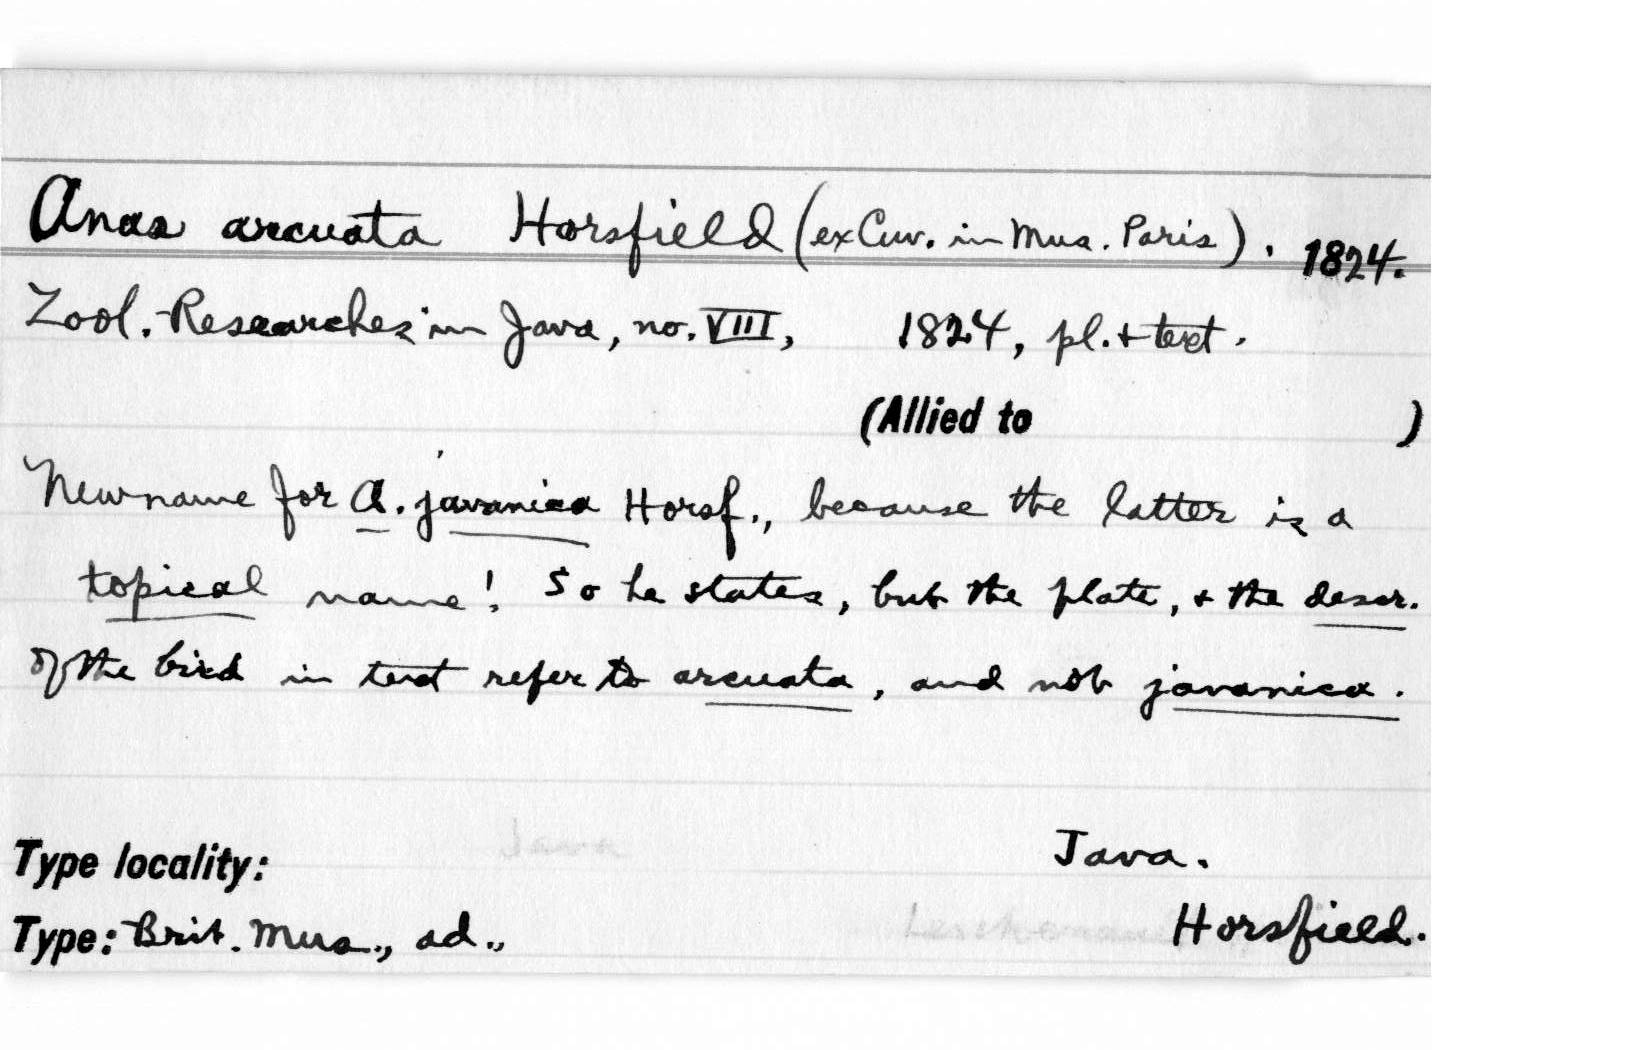 Anas arcuata Horsfield (ex Cuv. in Mus. Paris). 1824.
Zool. Researches in Java, no. VIII, 1824, pl. + text.
(Allied to )
New name for A. javanica Horsf., because the latter is a
topical name! So he states, but the plate, + the descr.
of the bird in text refer to arcuata, and not javanica.
Type locality: Java Java.
Type: Brit. Mus., ad., Horsfield.